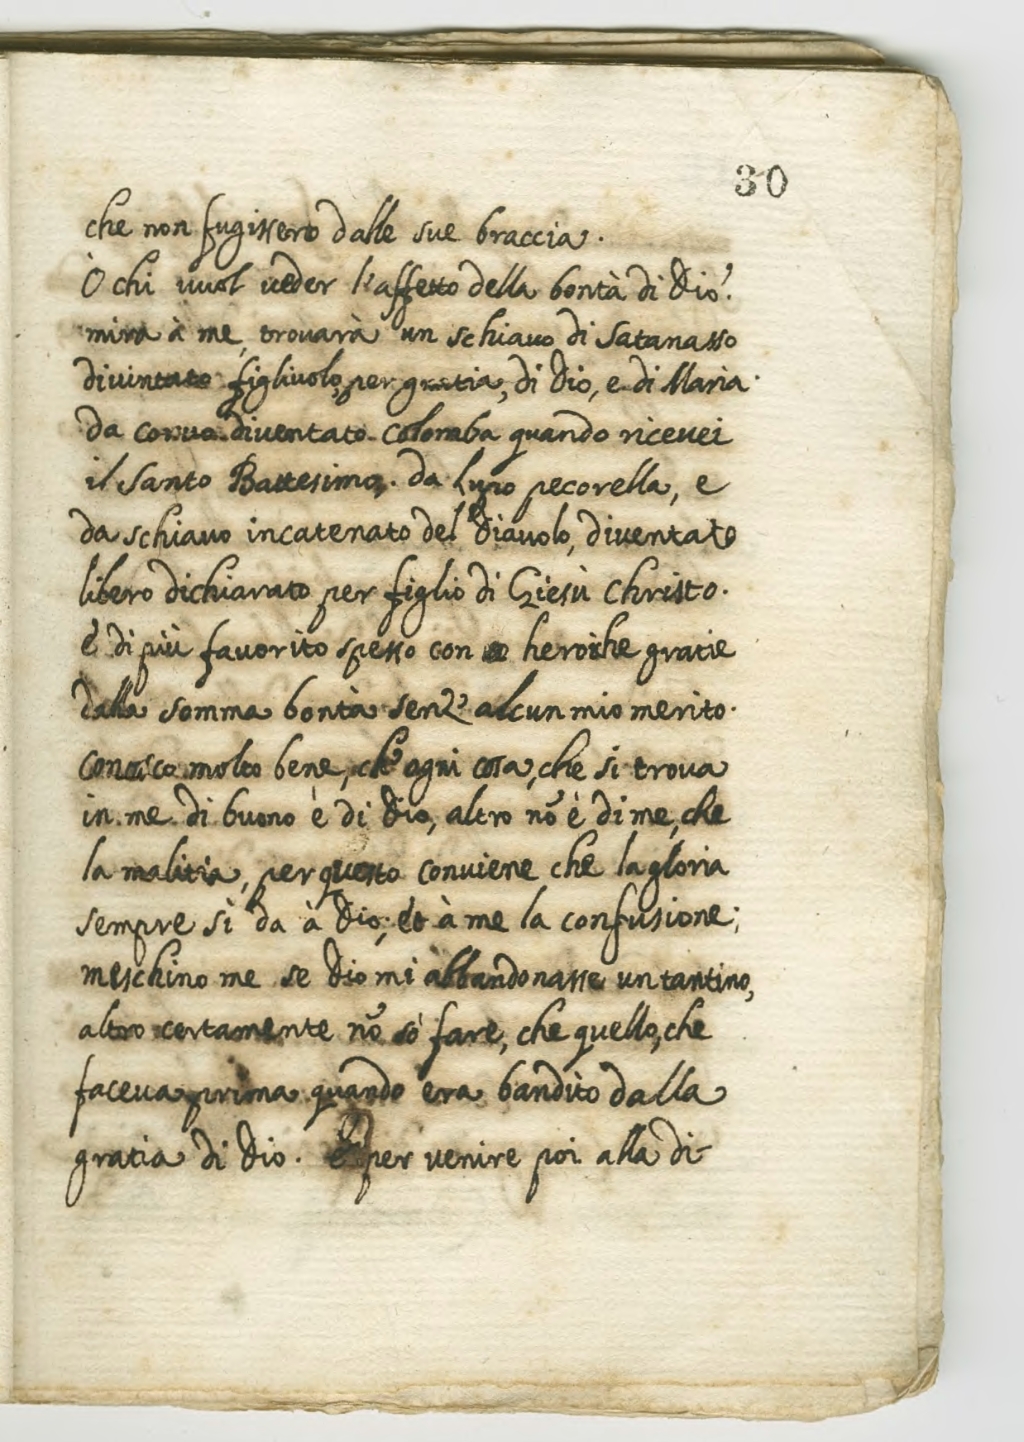 30
che non fugissero dalle sue braccia.
Ò chi vuol veder l'affetto della bontà di Dio!
mira à me, trouarà un schiauo di Satanasso
diuintato figliuolo, per gratia, di Dio, e di Maria.
da coruo diuentato colomba quando riceuei
il Santo Battesimo, da lupo pecorella, e
da schiauo incatenato del Diauolo, diuentato
libero dichiarato per figlio di Giesù Christo.
è di più fauorito spesso con heroiche gratie
dalla somma bontà senz' alcun mio merito.
conosco molto bene, ch' ogni cosa, che si troua
in me di buono è di Dio, altro nõ è di me, che
la malitia, per questo conuiene che la gloria
sempre sì da à Dio, et à me la confusione;
meschino me se Dio mi abbandonasse un tantino,
altro certamente nõ sò fare, che quello, che
faceua prima quando era bandito dalla
gratia di Dio. E per venire poi alla di-